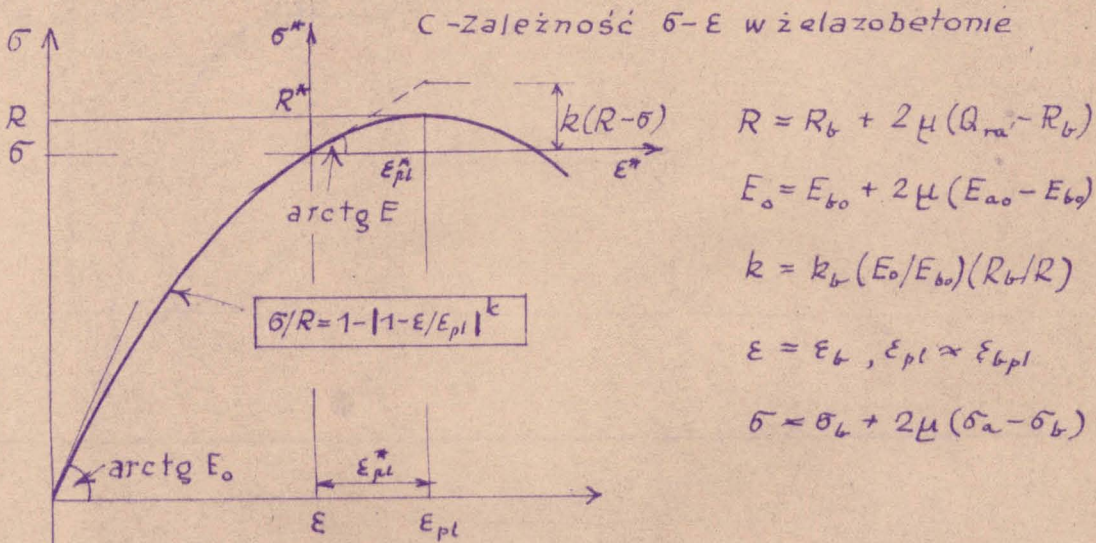 C-Zależność σ-ε w żelazobetonie
σ
σ*
R*
R
σ
k(R-σ)
ε*pl
ε*
arctg E
σ/R = 1-|1-ε/εpl|^k
arctg E₀
ε*pl
ε
εpl
R = R_b + 2μ(Q_ra - R_b)
E₀ = E_bo + 2μ(E_ao - E_bo)
k = k_b (E₀/E_bo)(R_b/R)
ε = ε_b , ε_pl ≈ ε_bpl
σ = σ_b + 2μ(σ_a - σ_b)